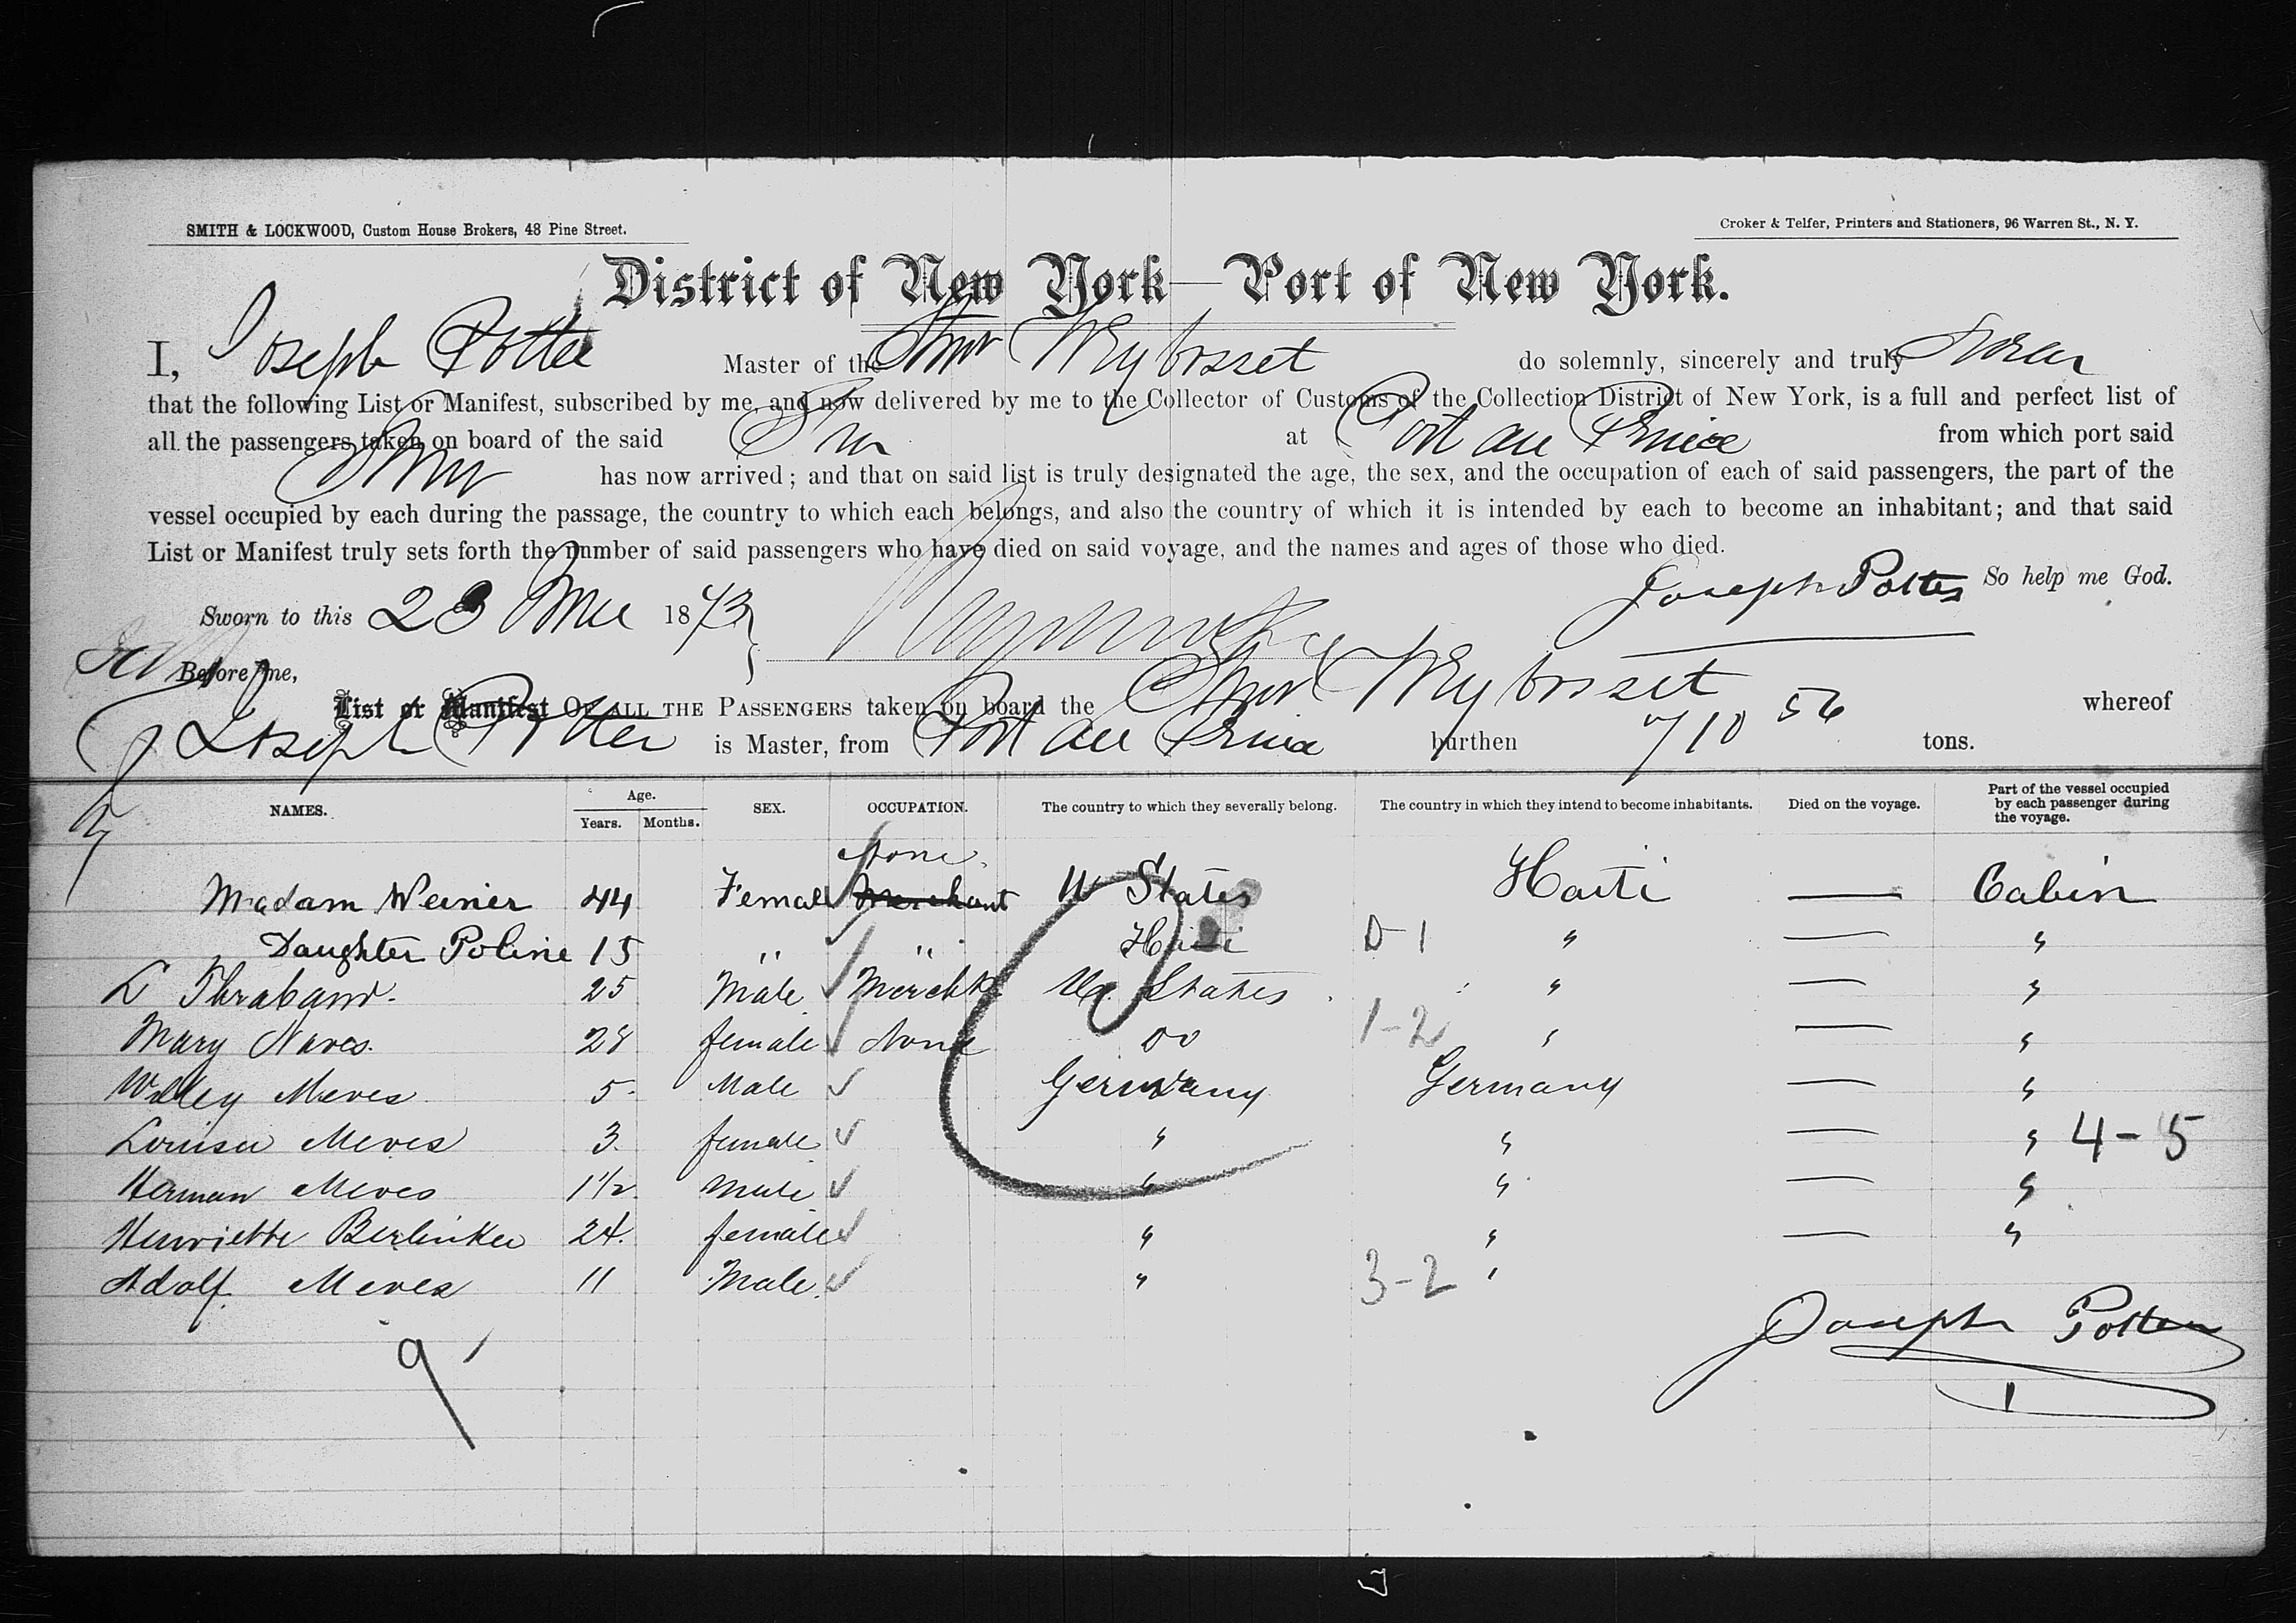 SMITH & LOCKWOOD, Custom House Brokers, 48 Pine Street.
Croker & Telfer, Printers and Stationers, 96 Warren St., N. Y.
District of New York—Port of New York.
I, Joseph Potter Master of the Stmr Weybosset do solemnly, sincerely and truly Swear
that the following List or Manifest, subscribed by me, and now delivered by me to the Collector of Customs of the Collection District of New York, is a full and perfect list of
all the passengers taken on board of the said Str at Port au Prince from which port said
Stmr has now arrived; and that on said list is truly designated the age, the sex, and the occupation of each of said passengers, the part of the
vessel occupied by each during the passage, the country to which each belongs, and also the country of which it is intended by each to become an inhabitant; and that said
List or Manifest truly sets forth the number of said passengers who have died on said voyage, and the names and ages of those who died.
Joseph Potter So help me God.
Sworn to this 23 June 1873
Before me,
List or Manifest OF ALL THE PASSENGERS taken on board the Stmr Weybosset whereof
Joseph Potter is Master, from Port au Prince burthen 710 56 tons.
NAMES. Age. Years. Months. SEX. OCCUPATION. The country to which they severally belong. The country in which they intend to become inhabitants. Died on the voyage. Part of the vessel occupied by each passenger during the voyage.
None
Madam Weiner 44 Female Merchant U States Haiti — Cabin
Daughter Poline 15 " " Haiti 0-1 " — "
L Thraband. 25 Male Mercht Un. States " — "
Mary Naves. 28 female None Do 1-2 " — "
Willey Meves 5 Male Germany Germany — "
Louisa Meves 3 female " " — " 4-5
Herman Meves 1 1/2 Male " " — "
Henriette Berlinker 24. female " " — "
Adolf Meves 11 Male. " 3-2 "
9
Joseph Potter
1